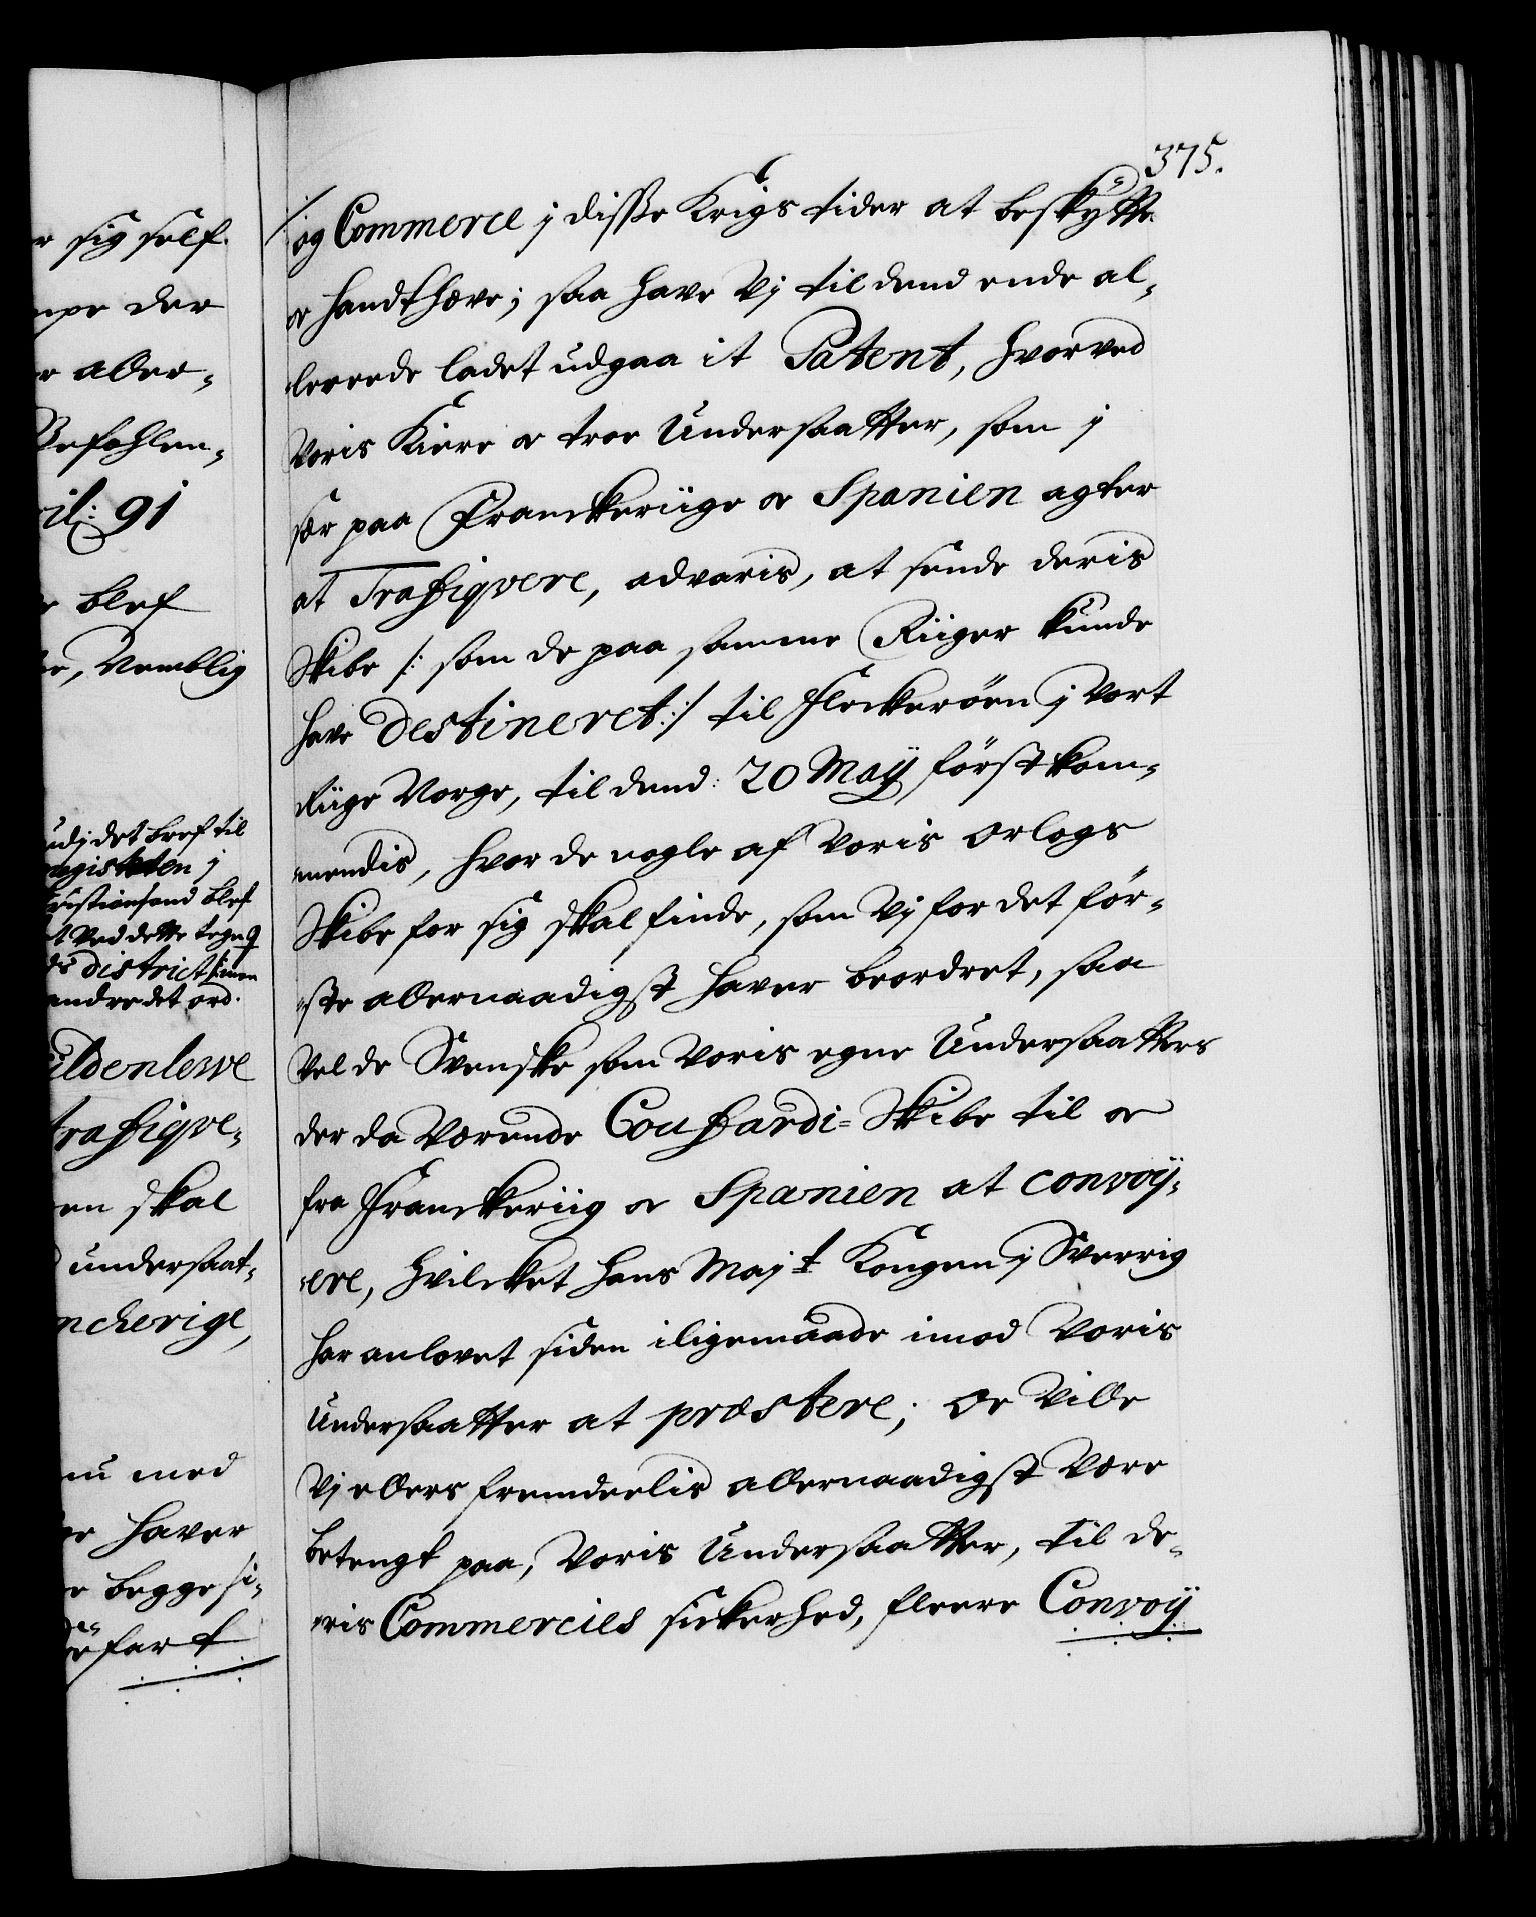 375.
og Commerce j disse Krigs tider at beskÿtte
oc handthæve; saa have Vj til dend ende al-
lereede ladet udgaa it Patent, hvorved
Voris Kiere oc troe Undersaatter, som j
sær paa Franckeriige oc Spanien agter
at Traffiqvere, advaris, at sende deris
Skibe /: som de paa samme Riiger kunde
have destineret :/ til Fleckerøen j Vort
Riige Norge, til dend: 20 Maÿ førstkom-
mendis, hvor de nogle af Voris Orlogs
Skibe for sig skal finde, som Vj for det før-
ste allernaadigst haver beordret, saa
Vel de Svenske som Voris egne Undersaatters
der da Værende Couffardi-Skibe til oc
fra Franckeriig oc Spanien at convoÿ-
ere, hvilcket Hans Majt Kongen j Sverrig
har anlovet siden iligemaade imod Voris
Undersaatter at præstere; Oc Ville
Vj ellers fremdeelis allernaadigst Være
betengt paa, Voris Undersaatter, til de-
ris Commercies sickerhed, fleere Convoÿ
r sig self.
der
r aller-
Befahlen-
il: 91
blef
Nemblig
udj det bref til
j
Christiansand blef
Ved dette tegn
district
andre det ord.
ildenlewe
traffiqve-
en skal
undersaat-
ncherige,
nu med
haver
begge si-
fart